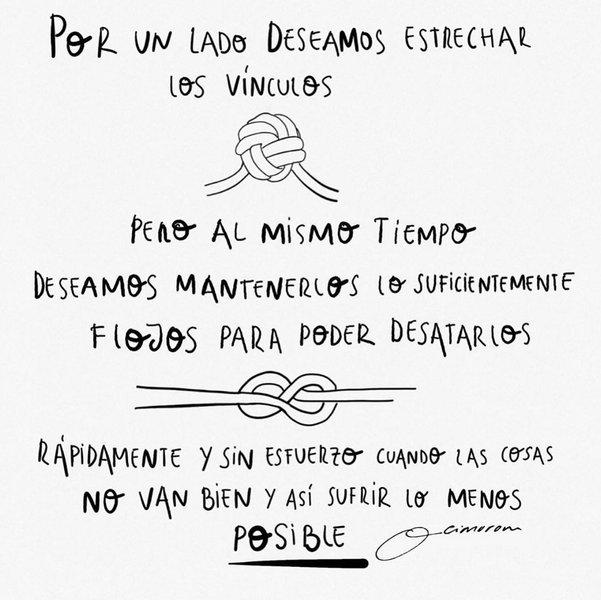 POR UN LADO DESEAMOS ESTRECHAR
LOS VÍNCULOS
PERO AL MISMO TIEMPO
DESEAMOS MANTENERLOS LO SUFICIENTEMENTE
FLOJOS PARA PODER DESATARLOS
RÁPIDAMENTE Y SIN ESFUERZO CUANDO LAS COSAS
NO VAN BIEN Y ASÍ SUFRIR LO MENOS
POSIBLE